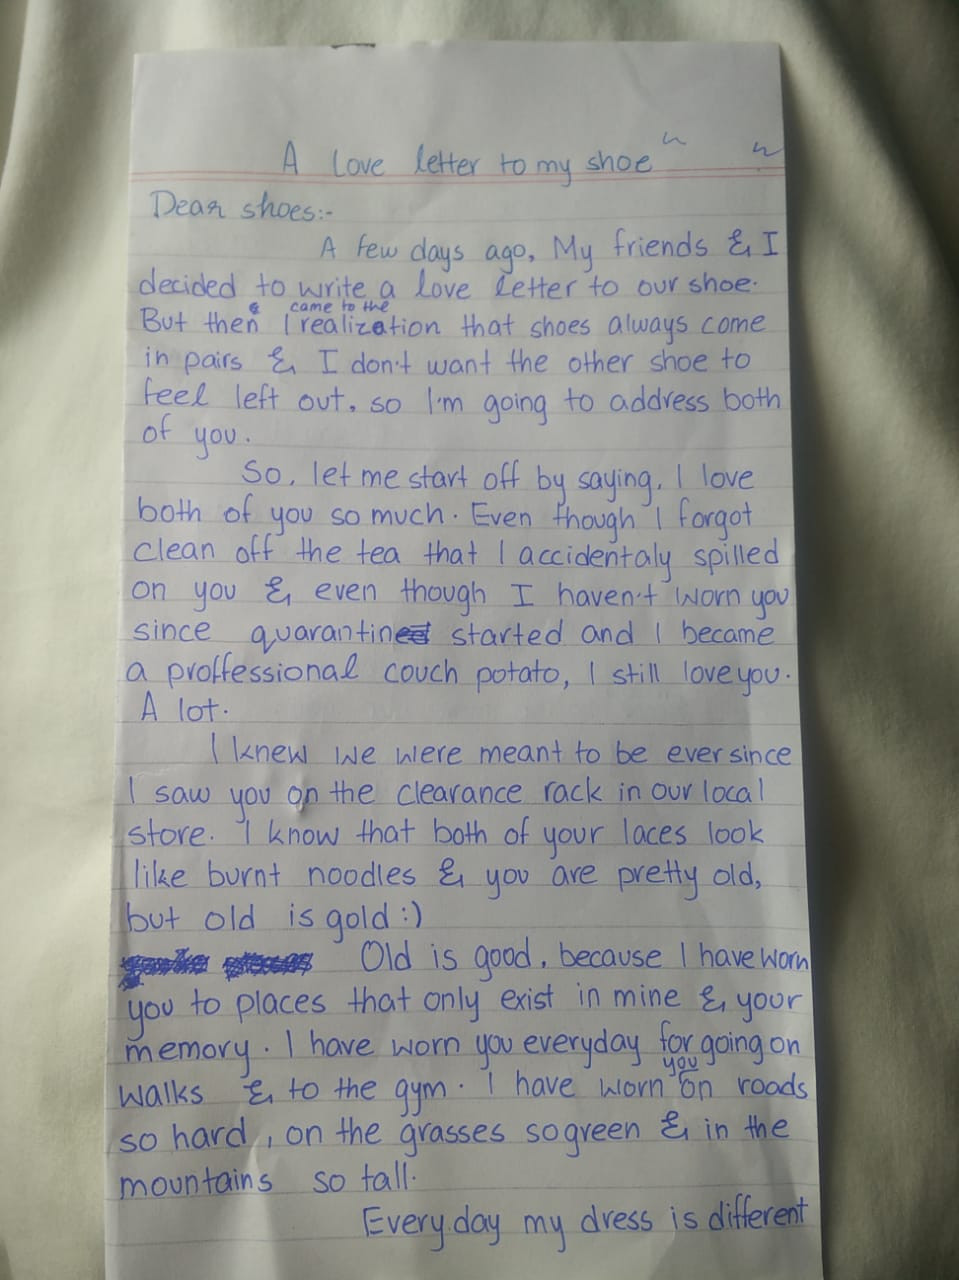 A love letter to my shoe
Dear shoes:-
A few days ago, My friends & I
decided to write a love letter to our shoe.
But then I came to the realization that shoes always come
in pairs & I don't want the other shoe to
feel left out, so I'm going to address both
of you.
So, let me start off by saying, I love
both of you so much. Even though I forgot
clean off the tea that I accidentaly spilled
on you & even though I haven't worn you
since quarantine started and I became
a proffessional couch potato, I still love you.
A lot.
I knew we were meant to be ever since
I saw you on the clearance rack in our local
store. I know that both of your laces look
like burnt noodles & you are pretty old,
but old is gold :)
Old is good, because I have worn
you to places that only exist in mine & your
memory. I have worn you everyday for going on
walks & to the gym. I have worn you on roads
so hard, on the grasses so green & in the
mountains so tall.
Every day my dress is different